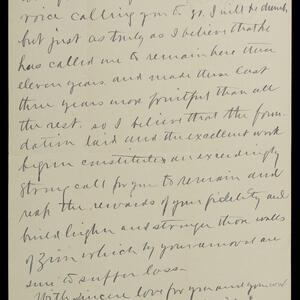 voice calling you to go. I will be dumb,
but just as truly as I believe that he
has called me to remain here these
eleven years and made these last
three years more fruitful than all
the rest. so I believe that the foun-
dation laid and the excellent work
begun constitutes an exceedingly
strong call for you to remain and
reap the rewards of your fidelity and
build higher and stronger those walls
of Zion which by your removal are
sure to suffer loss.
With sincere love for you and your work